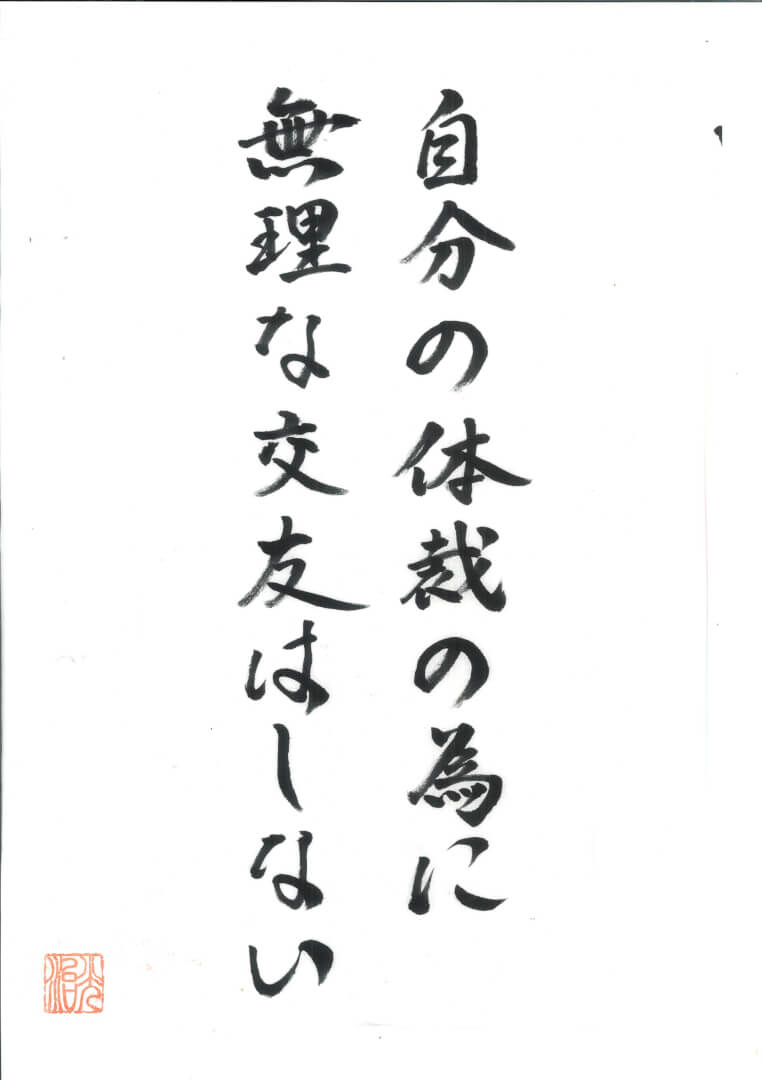 自分の体裁の為に
無理な交友はしない